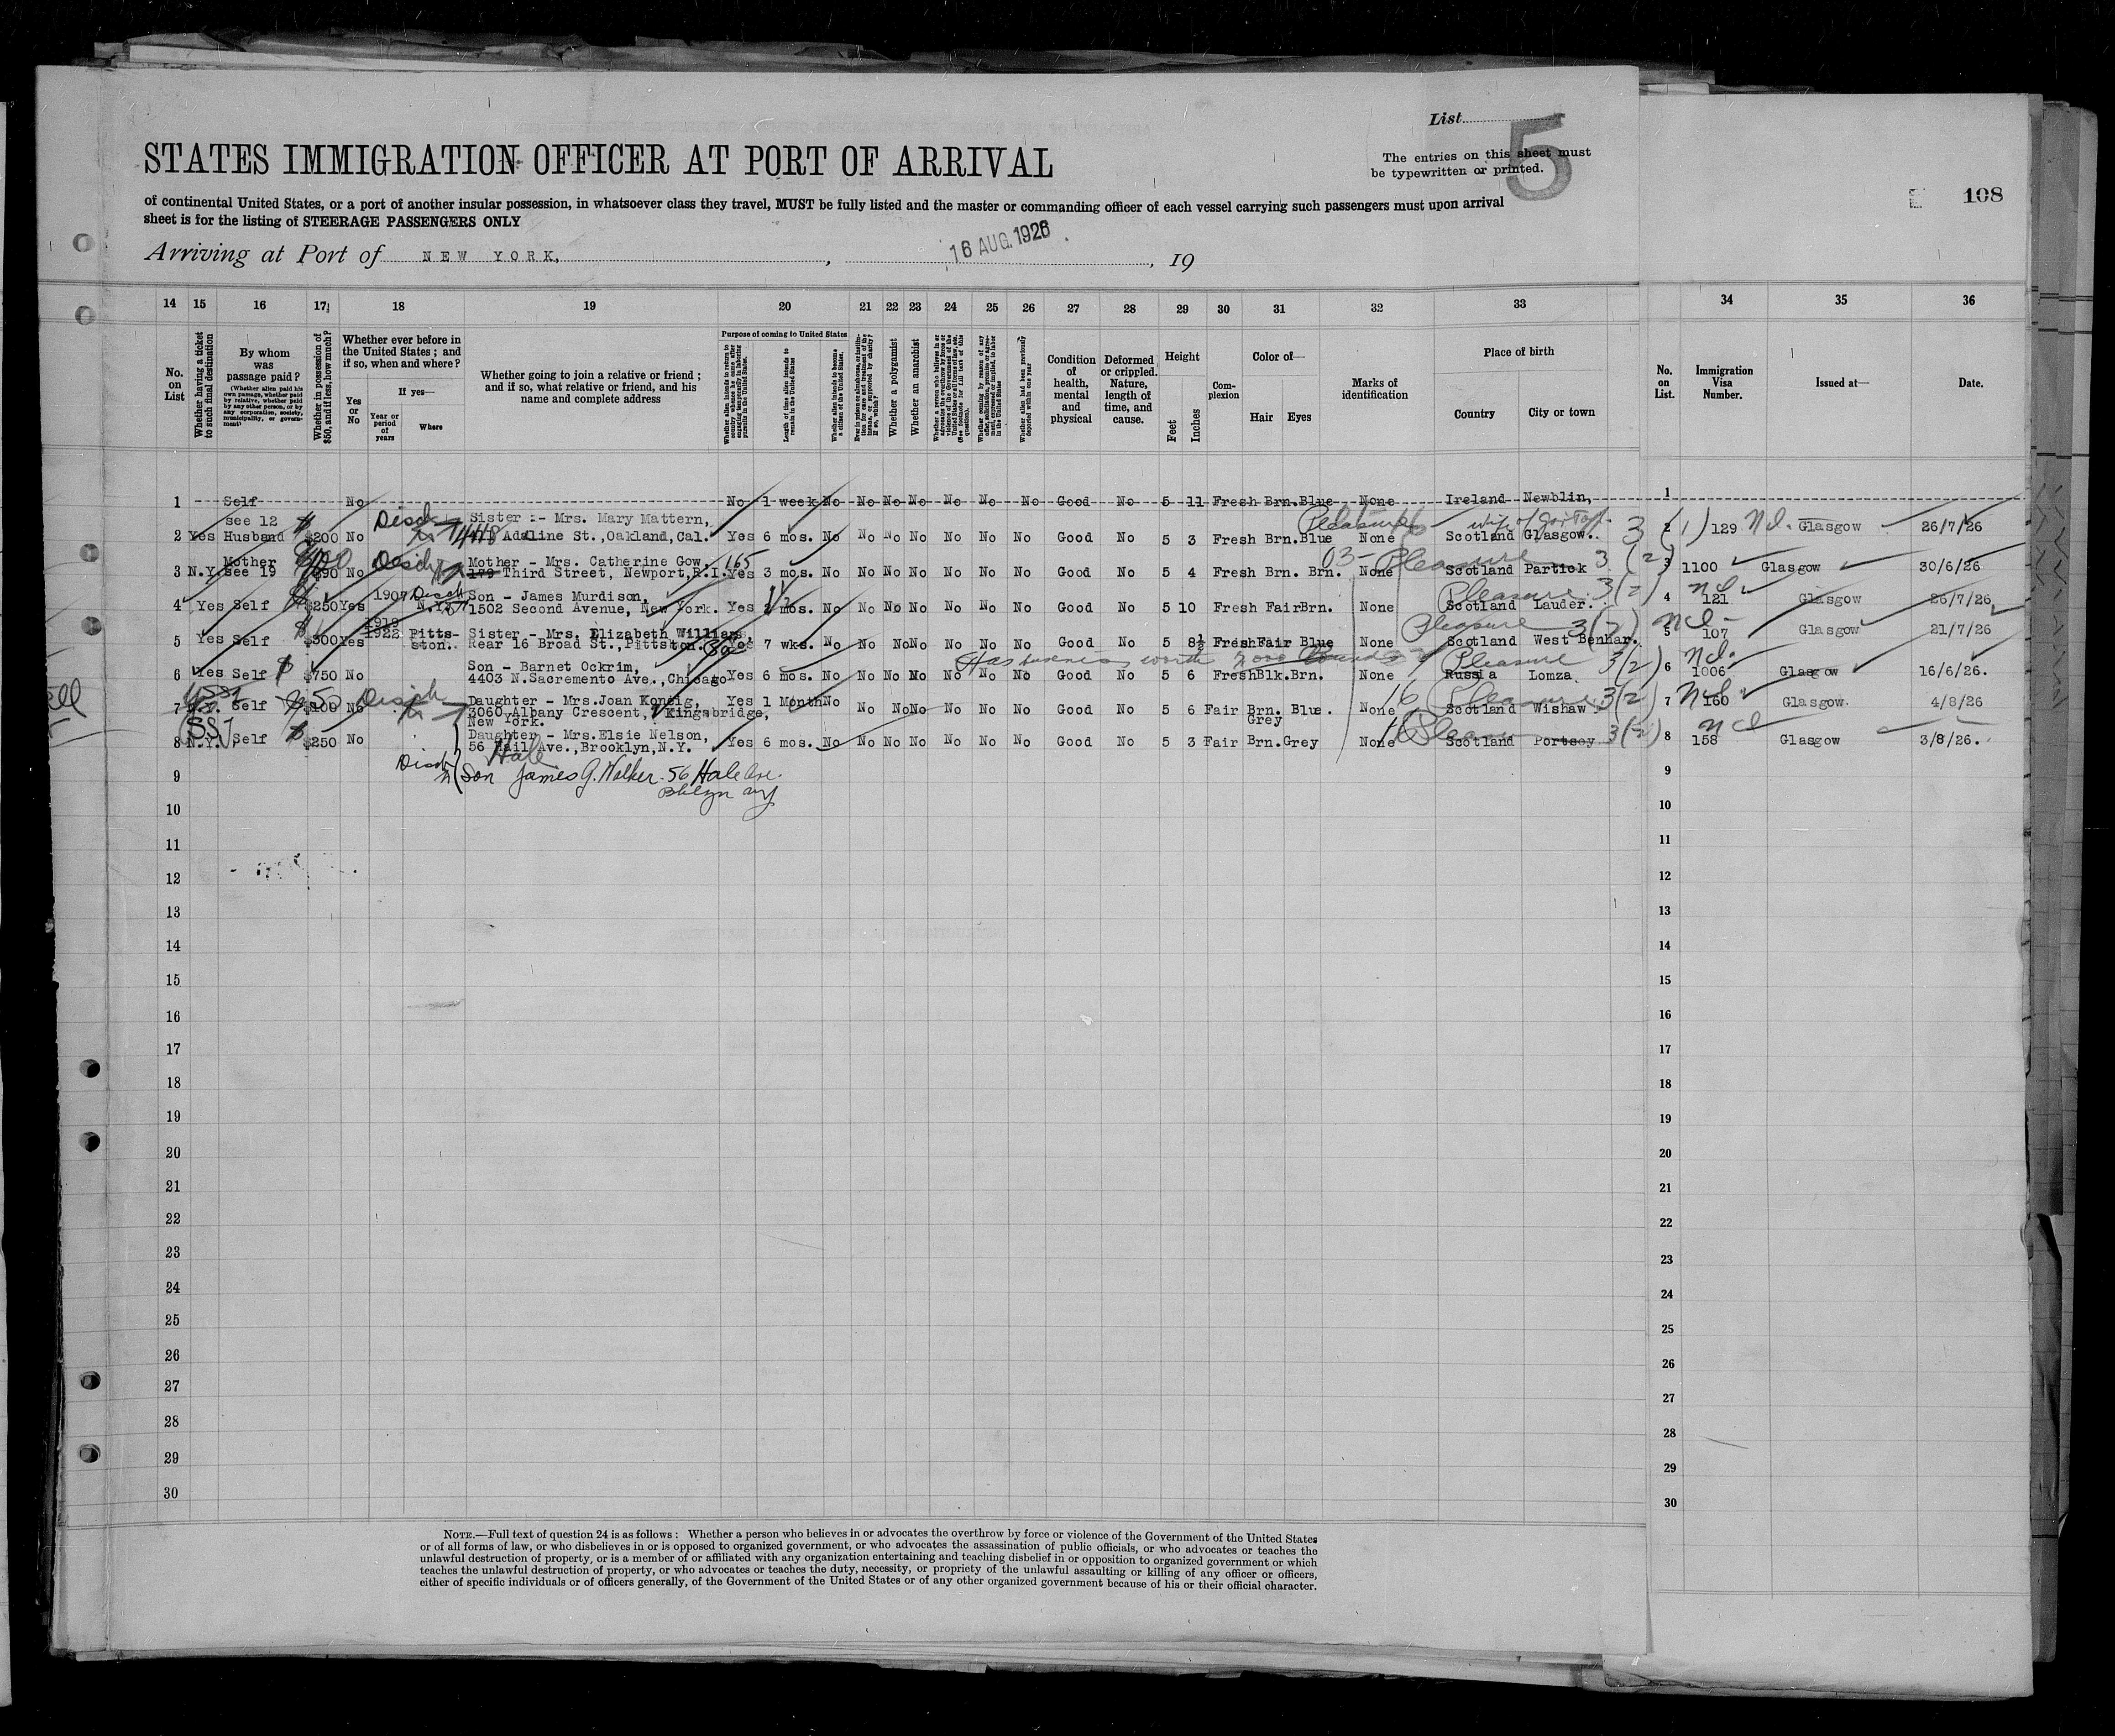 List
5
STATES IMMIGRATION OFFICER AT PORT OF ARRIVAL
The entries on this sheet must
be typewritten or printed.
108
of continental United States, or a port of another insular possession, in whatsoever class they travel, MUST be fully listed and the master or commanding officer of each vessel carrying such passengers must upon arrival
sheet is for the listing of STEERAGE PASSENGERS ONLY
Arriving at Port of NEW YORK, , 16 AUG. 1926 , 19
14 15 16 17 18 19 20 21 22 23 24 25 26 27 28 29 30 31 32 33 34 35 36
No. on List
Whether having a ticket to such final destination
By whom was passage paid?
(Whether alien paid his own passage, whether paid by relative, whether paid by any other person, or by any corporation, society, municipality, or government)
Whether in possession of $50, and if less, how much?
Whether ever before in the United States; and if so, when and where?
If yes—
Yes or No
Year or period of years
Where
Whether going to join a relative or friend; and if so, what relative or friend, and his name and complete address
Purpose of coming to United States
Length of time alien intends to remain in the United States
Whether alien intends to become a citizen of the United States.
Whether a polygamist
Whether an anarchist
Condition of health, mental and physical
Deformed or crippled. Nature, length of time, and cause.
Height
Feet
Inches
Complexion
Color of—
Hair Eyes
Marks of identification
Place of birth
Country City or town
No. on List.
Immigration Visa Number.
Issued at—
Date.
1 Self No No 1 week No No No No No No No Good No 5 11 Fresh Brn. Blue None Ireland Newblin, 1
see 12 Disch Sister :- Mrs. Mary Mattern, Pleasure wife of
2 Yes Husband $200 No Adaline St.,Oakland,Cal. Yes 6 mos. No No No No No No No Good No 5 3 Fresh Brn. Blue None Scotland Glasgow. 3 (1) 2 129 Glasgow 26/7/26
Mother Disch Mother - Mrs. Catherine Gow, 165 03- Pleasure
3 N.Y. see 19 $90 No 179 Third Street, Newport,R.I. Yes 3 mos. No No No No No No No Good No 5 4 Fresh Brn. Brn. None Scotland Partick 3 (2) 3 1100 Glasgow 30/6/26
1907 Disch Son - James Murdison, Pleasure 3(2)
4 Yes Self $250 Yes N.Y. 1502 Second Avenue, New York. Yes 2 mos. No No No No No No No Good No 5 10 Fresh Fair Brn. None Scotland Lauder. 4 121 Glasgow 26/7/26
1919 1922 Pittston. Sister - Mrs. Elizabeth Williams, Pleasure 3(2)
5 Yes Self $300 Yes Rear 16 Broad St.,Pittston. Yes 7 wks. No No No No No No No Good No 5 8½ Fresh Fair Blue None Scotland West Benhar. 5 107 Glasgow 21/7/26
Son - Barnet Ockrim, Has business worth Pleasure 3(2)
6 Yes Self $750 No 4403 N.Sacremento Ave.,Chicago Yes 6 mos. No No No No No No No Good No 5 6 Fresh Blk. Brn. None Russia Lomza 6 1006 Glasgow 16/6/26.
Disch Daughter - Mrs.Joan Koneig, 16 Pleasure 3(2)
7 Self $100 No 3060 Albany Crescent, Kingsbridge, New York. Yes 1 Month No No No No No No No Good No 5 6 Fair Brn. Grey Blue. None Scotland Wishaw 7 160 Glasgow. 4/8/26
Daughter - Mrs.Elsie Nelson, 3(2)
8 N.Y. Self $250 No 56 Hail Ave.,Brooklyn,N.Y. Yes 6 mos. No No No No No No No Good No 5 3 Fair Brn. Grey None Scotland Portsoy 8 158 Glasgow 3/8/26.
Hale
9 Disch Son James G. Walker - 56 Hale Ave. 9
Bklyn NY
10 10
11 11
12 12
13 13
14 14
15 15
16 16
17 17
18 18
19 19
20 20
21 21
22 22
23 23
24 24
25 25
26 26
27 27
28 28
29 29
30 30
NOTE.—Full text of question 24 is as follows: Whether a person who believes in or advocates the overthrow by force or violence of the Government of the United States
or of all forms of law, or who disbelieves in or is opposed to organized government, or who advocates the assassination of public officials, or who advocates or teaches the
unlawful destruction of property, or is a member of or affiliated with any organization entertaining and teaching disbelief in or opposition to organized government or which
teaches the unlawful destruction of property, or who advocates or teaches the duty, necessity, or propriety of the unlawful assaulting or killing of any officer or officers,
either of specific individuals or of officers generally, of the Government of the United States or of any other organized government because of his or their official character.